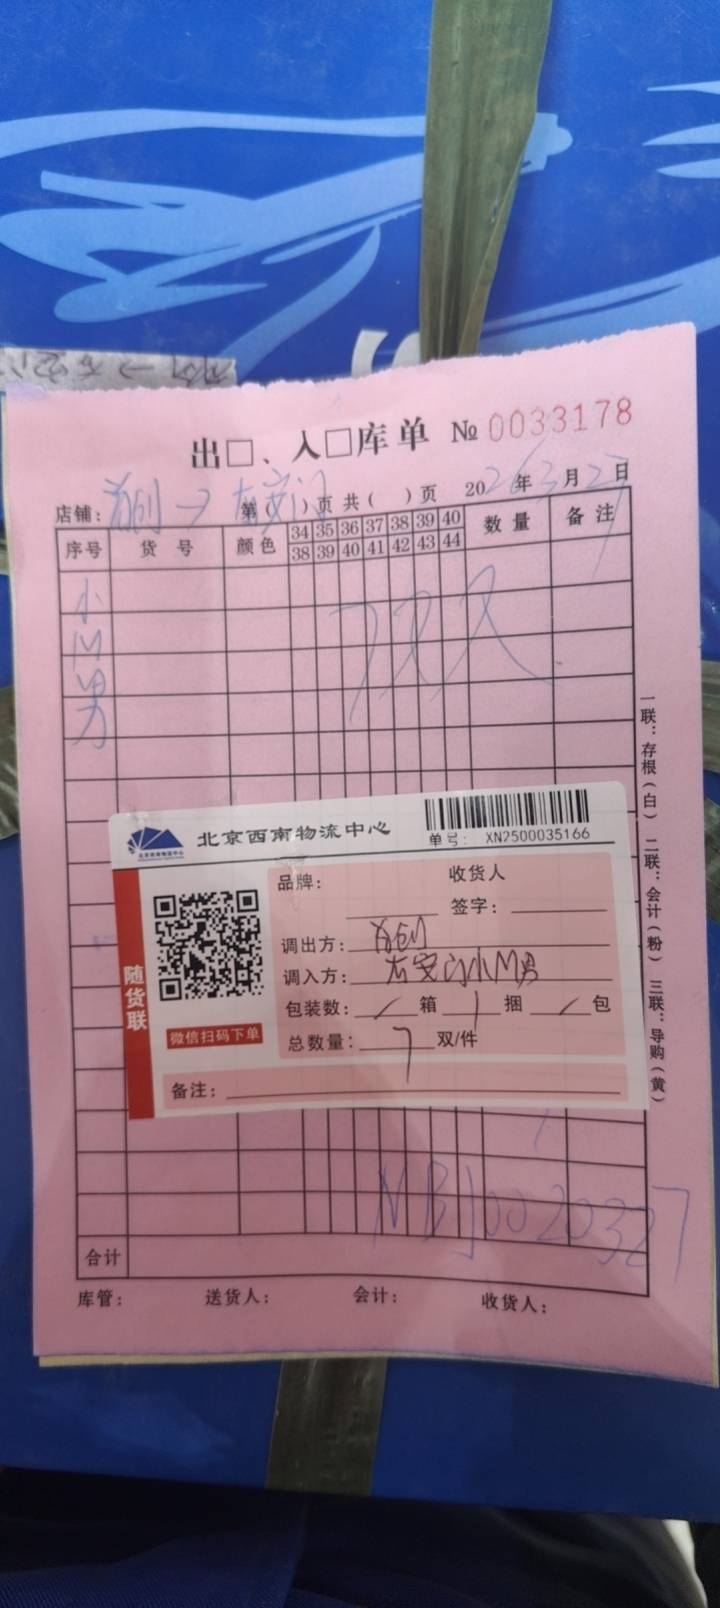 出□、入□库单 № 0033178
店铺：首创→右安门 第( )页 共( )页 2026年3月27日
序号 货号 颜色 34 35 36 37 38 39 40 数量 备注
38 39 40 41 42 43 44
小M男
7双
一联：存根（白） 二联：会计（粉） 三联：导购（黄）
北京西南物流中心
单号： XN2500035166
随货联
微信扫码下单
品牌： 收货人
签字：
调出方：首创
调入方：右安门小M男
包装数：/箱 1捆 /包
总数量：7双/件
备注：
NBJ0020327
合计
库管： 送货人： 会计： 收货人：